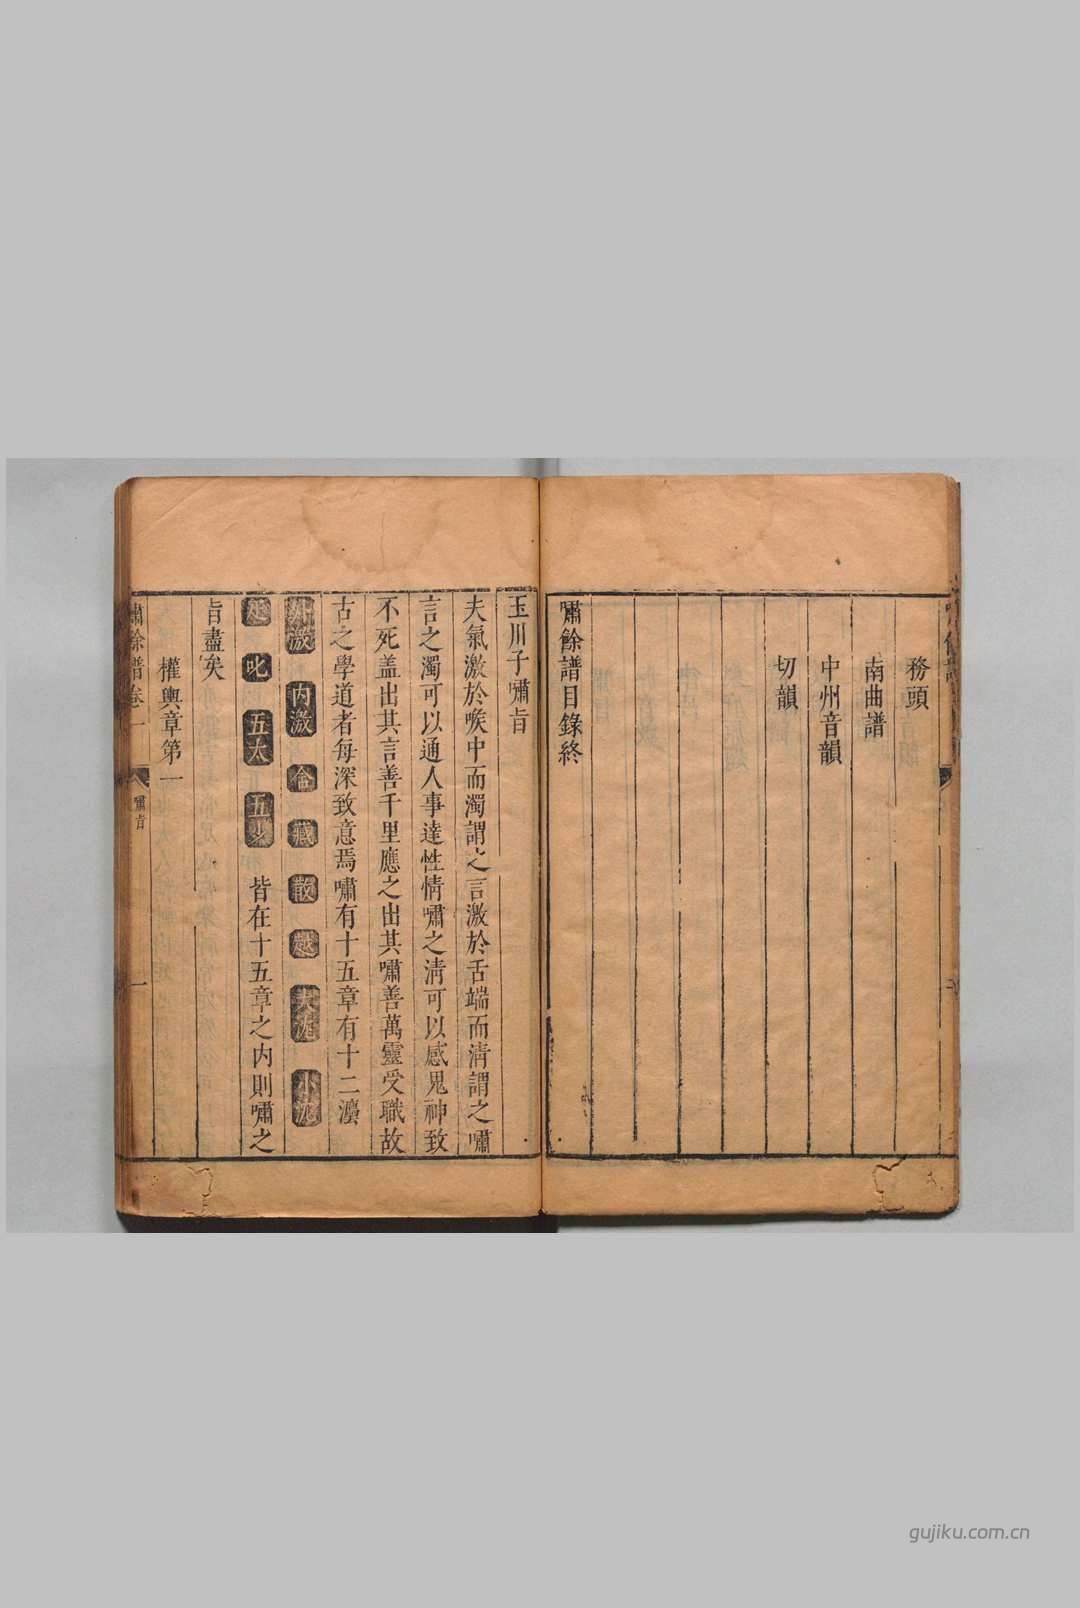 務頭
南曲譜
中州音韻
切韻
嘯餘譜目錄終
玉川子嘯旨
夫氣激於喉中而濁謂之言激於舌端而清謂之嘯
言之濁可以通人事達性情嘯之清可以感鬼神致
不死盖出其言善千里應之出其嘯善萬靈受職故
古之學道者每深致意焉嘯有十五章有十二灋
外激 內激 含 藏 散 越 大沉 小沉
疋 叱 五太 五少 皆在十五章之内則嘯之
旨盡矣
權輿章第一
嘯餘譜卷一
嘯旨
一
gujiku.com.cn